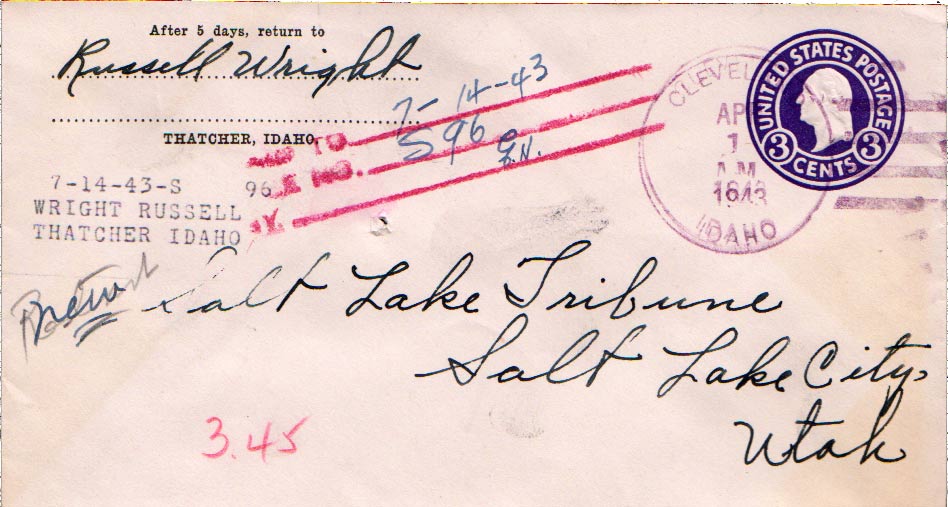 After 5 days, return to
Russell Wright
THATCHER, IDAHO.
7-14-43
S 96
TO
NO.
7-14-43-S 96
WRIGHT RUSSELL
THATCHER IDAHO
CLEVEL
APR
1
A.M.
1943
IDAHO
UNITED STATES POSTAGE
3 CENTS 3
new
Salt Lake Tribune
Salt Lake City,
Utah
3.45